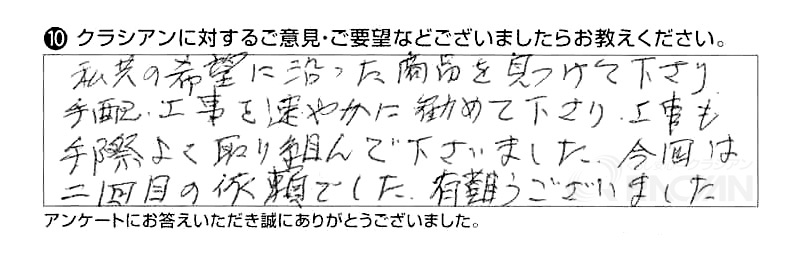 ⑩ クラシアンに対するご意見・ご要望などございましたらお教えください。
私共の希望に沿った商品を見つけて下さり、
手配、工事を速やかに勧めて下さり、工事も
手際よく取り組んで下さいました。今回は
二回目の依頼でした。有難うございました
アンケートにお答えいただき誠にありがとうございました。